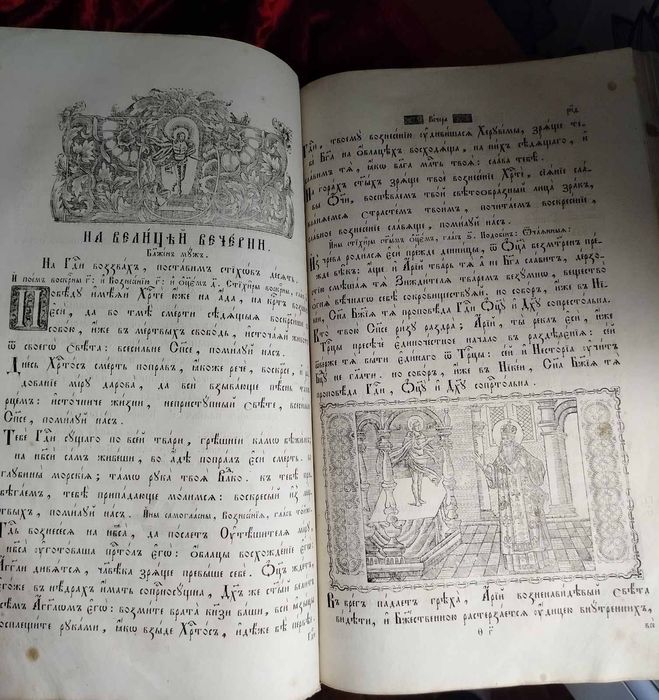 НА ВЕЛИЦѢЙ ВЕЧЕРНИ.
Блаже́нъ мꙋ́жъ.
На Гд҃и воззва́хъ, поста́вимъ стїхѡ́въ де́сѧть,
И҆ пое́мъ воскрⷭ҇ны г҃: и҆ Вознесе́нїѧ г҃: и҆ Ѻ҆ц҃е́мъ д҃. Стїхи́ры воскрⷭ҇ны, гла́съ
Побѣ́дꙋ и҆мѣ́ѧй Хрⷭ҇те́ ю҆́же на а҆́да, на крⷭ҇тъ возше́лъ
є҆сѝ, да во тмѣ̀ сме́рти сѣдѧ́щыѧ воскреси́ши съ
собо́ю, и҆́же въ ме́ртвыхъ свобо́дь, и҆сточа́ѧй живо́тъ
ѿ своегѡ̀ свѣ́та: всеси́льне Сп҃се, поми́лꙋй на́съ.
Дне́сь Хрⷭ҇то́съ сме́рть попра́въ, ꙗ҆́коже речѐ, воскре́се, и҆ ра́-
дованїе мі́рꙋ дарова̀, да всѝ взыва́юще пѣ́снь та́кѡ
рце́мъ: и҆сто́чниче жи́зни, непристꙋ́пный свѣ́те, всеси́льне
Сп҃се, поми́лꙋй на́съ.
Тебѐ Гд҃и сꙋ́щаго по все́й тва́ри, грѣ́шнїи ка́мѡ бѣжи́мъ;
на нб҃сѝ са́мъ живе́ши, во а҆́дѣ попра́лъ є҆сѝ сме́рть. во
глꙋбины̀ морскі̑ѧ; та́мѡ рꙋка̀ твоѧ̀ Влⷣко. къ тебѣ̀ при-
бѣга́емъ, тебѣ̀ припа́дающе мо́лимсѧ: воскресы́й и҆з̾ ме́р-
твыхъ, поми́лꙋй на́съ. И҆́ны самогла́сны, Вознесе́нїѧ, гла́съ то́йже.
Гдⷭ҇ь вознесе́сѧ на нб҃са̀, да по́слетъ Оу҆тѣ́шителѧ мі́рꙋ
нб҃са̀ оу҆гото́ваша прⷭ҇то́лъ є҆гѡ̀: ѡ҆́блацы восхожде́нїе є҆гѡ̀:
А҆́гг҃ли дивѧ́тсѧ, чл҃вѣ́ка зрѧ́ще превы́ше себє̀. Ѻ҆ц҃ъ жде́тъ,
є҆го́же въ нѣ́драхъ и҆́мать соприсносꙋ́щна, Дх҃ъ же ст҃ы́й вели́тъ
всѣ̑мъ А҆́гг҃лѡмъ є҆гѡ̀: возми́те врата̀ кнѧ̑зи ва́ши, всѝ ꙗ҆зы́цы
восплещи́те рꙋка́ми, ꙗ҆́кѡ взы́де Хрⷭ҇то́съ, и҆дѣ́же бѣ̀ пе́рвѣе.
Ве́чера
рн҃д
Гд҃и, твоемꙋ̀ вознесе́нїю оу҆диви́шасѧ Херꙋві́мы, зрѧ́ще те-
бѐ Бг҃а на ѡ҆́блацѣхъ восходѧ́ща, на ни́хъ сѣдѧ́щаго, и҆
сла́вимъ тѧ̀, ꙗ҆́кѡ бл҃га́ѧ мл҃ть твоѧ̀: сла́ва тебѣ̀.
На гора́хъ ст҃ы́хъ зрѧ́ще твоѐ вознесе́нїе Хрⷭ҇тѐ, сїѧ́нїе сла́-
вы Ѻ҆́ч҃и, воспѣва́емъ твоѐ свѣтоѻбра́зный лица̀ зра́къ,
кла́нѧемсѧ Страсте́мъ твои̑мъ, почита́емъ воскресе́нїе,
сла́вное вознесе́нїе сла́вѧще, поми́лꙋй на́съ.
И҆́ны стїхи́ры ст҃ы́мъ Ѻ҆ц҃е́мъ, гла́съ ѕ҃. Подо́бенъ: Ѿча́ѧнный:
И҆з̾ чре́ва роди́лсѧ є҆сѝ пре́жде денни́цы, ѿ Ѻ҆ц҃а̀ безма́теренъ пре́-
жде вѣ̑къ: а҆́ще и҆ А҆́рїй тва́рь тѧ̀ а҆ не Бг҃а сла́витъ, де́рзо-
стїю смѣша́ѧ тѧ̀ Зижди́телѧ тва́ремъ безꙋ́мнѡ, вещество̀
ѻ҆гнѧ̀ вѣ́чнагѡ себѣ̀ сокро́вищствꙋѧй. но собо́ръ, и҆́же въ Ні-
ке́и, Сн҃а Бж҃їѧ тѧ̀ проповѣ́да Гд҃и, Ѻ҆ц҃ꙋ̀ и҆ Дх҃ꙋ сопресто́льна.
Кто̀ твою̀ Сп҃се ри́зꙋ раздра̀; А҆́рїй, ты̀ ре́клъ є҆сѝ, и҆́же
Трⷪ҇цы пресѣкі́й є҆диноче́стное нача́ло въ раздѣлє́нїѧ: се́й
ѿве́рже тѧ̀ бы́ти є҆ди́наго ѿ Трⷪ҇цы: се́й и҆ Несто́рїа оу҆чи́тъ
Бцⷣꙋ не глаго́лати. но собо́ръ, и҆́же въ Ніке́и, Сн҃а Бж҃їѧ тѧ̀
проповѣ́да Гд҃и, Ѻ҆ц҃ꙋ̀ и҆ Дх҃ꙋ сопрⷭ҇то́льна.
Въ бре́гъ па́даетъ грѣха̀, А҆́рїй возненави́дѣвый свѣ́та
ви́дѣти, и҆ бжⷭ҇твенною растерза́етсѧ оу҆ди́цею внꙋ́треннихъ,
Ѳ г҃